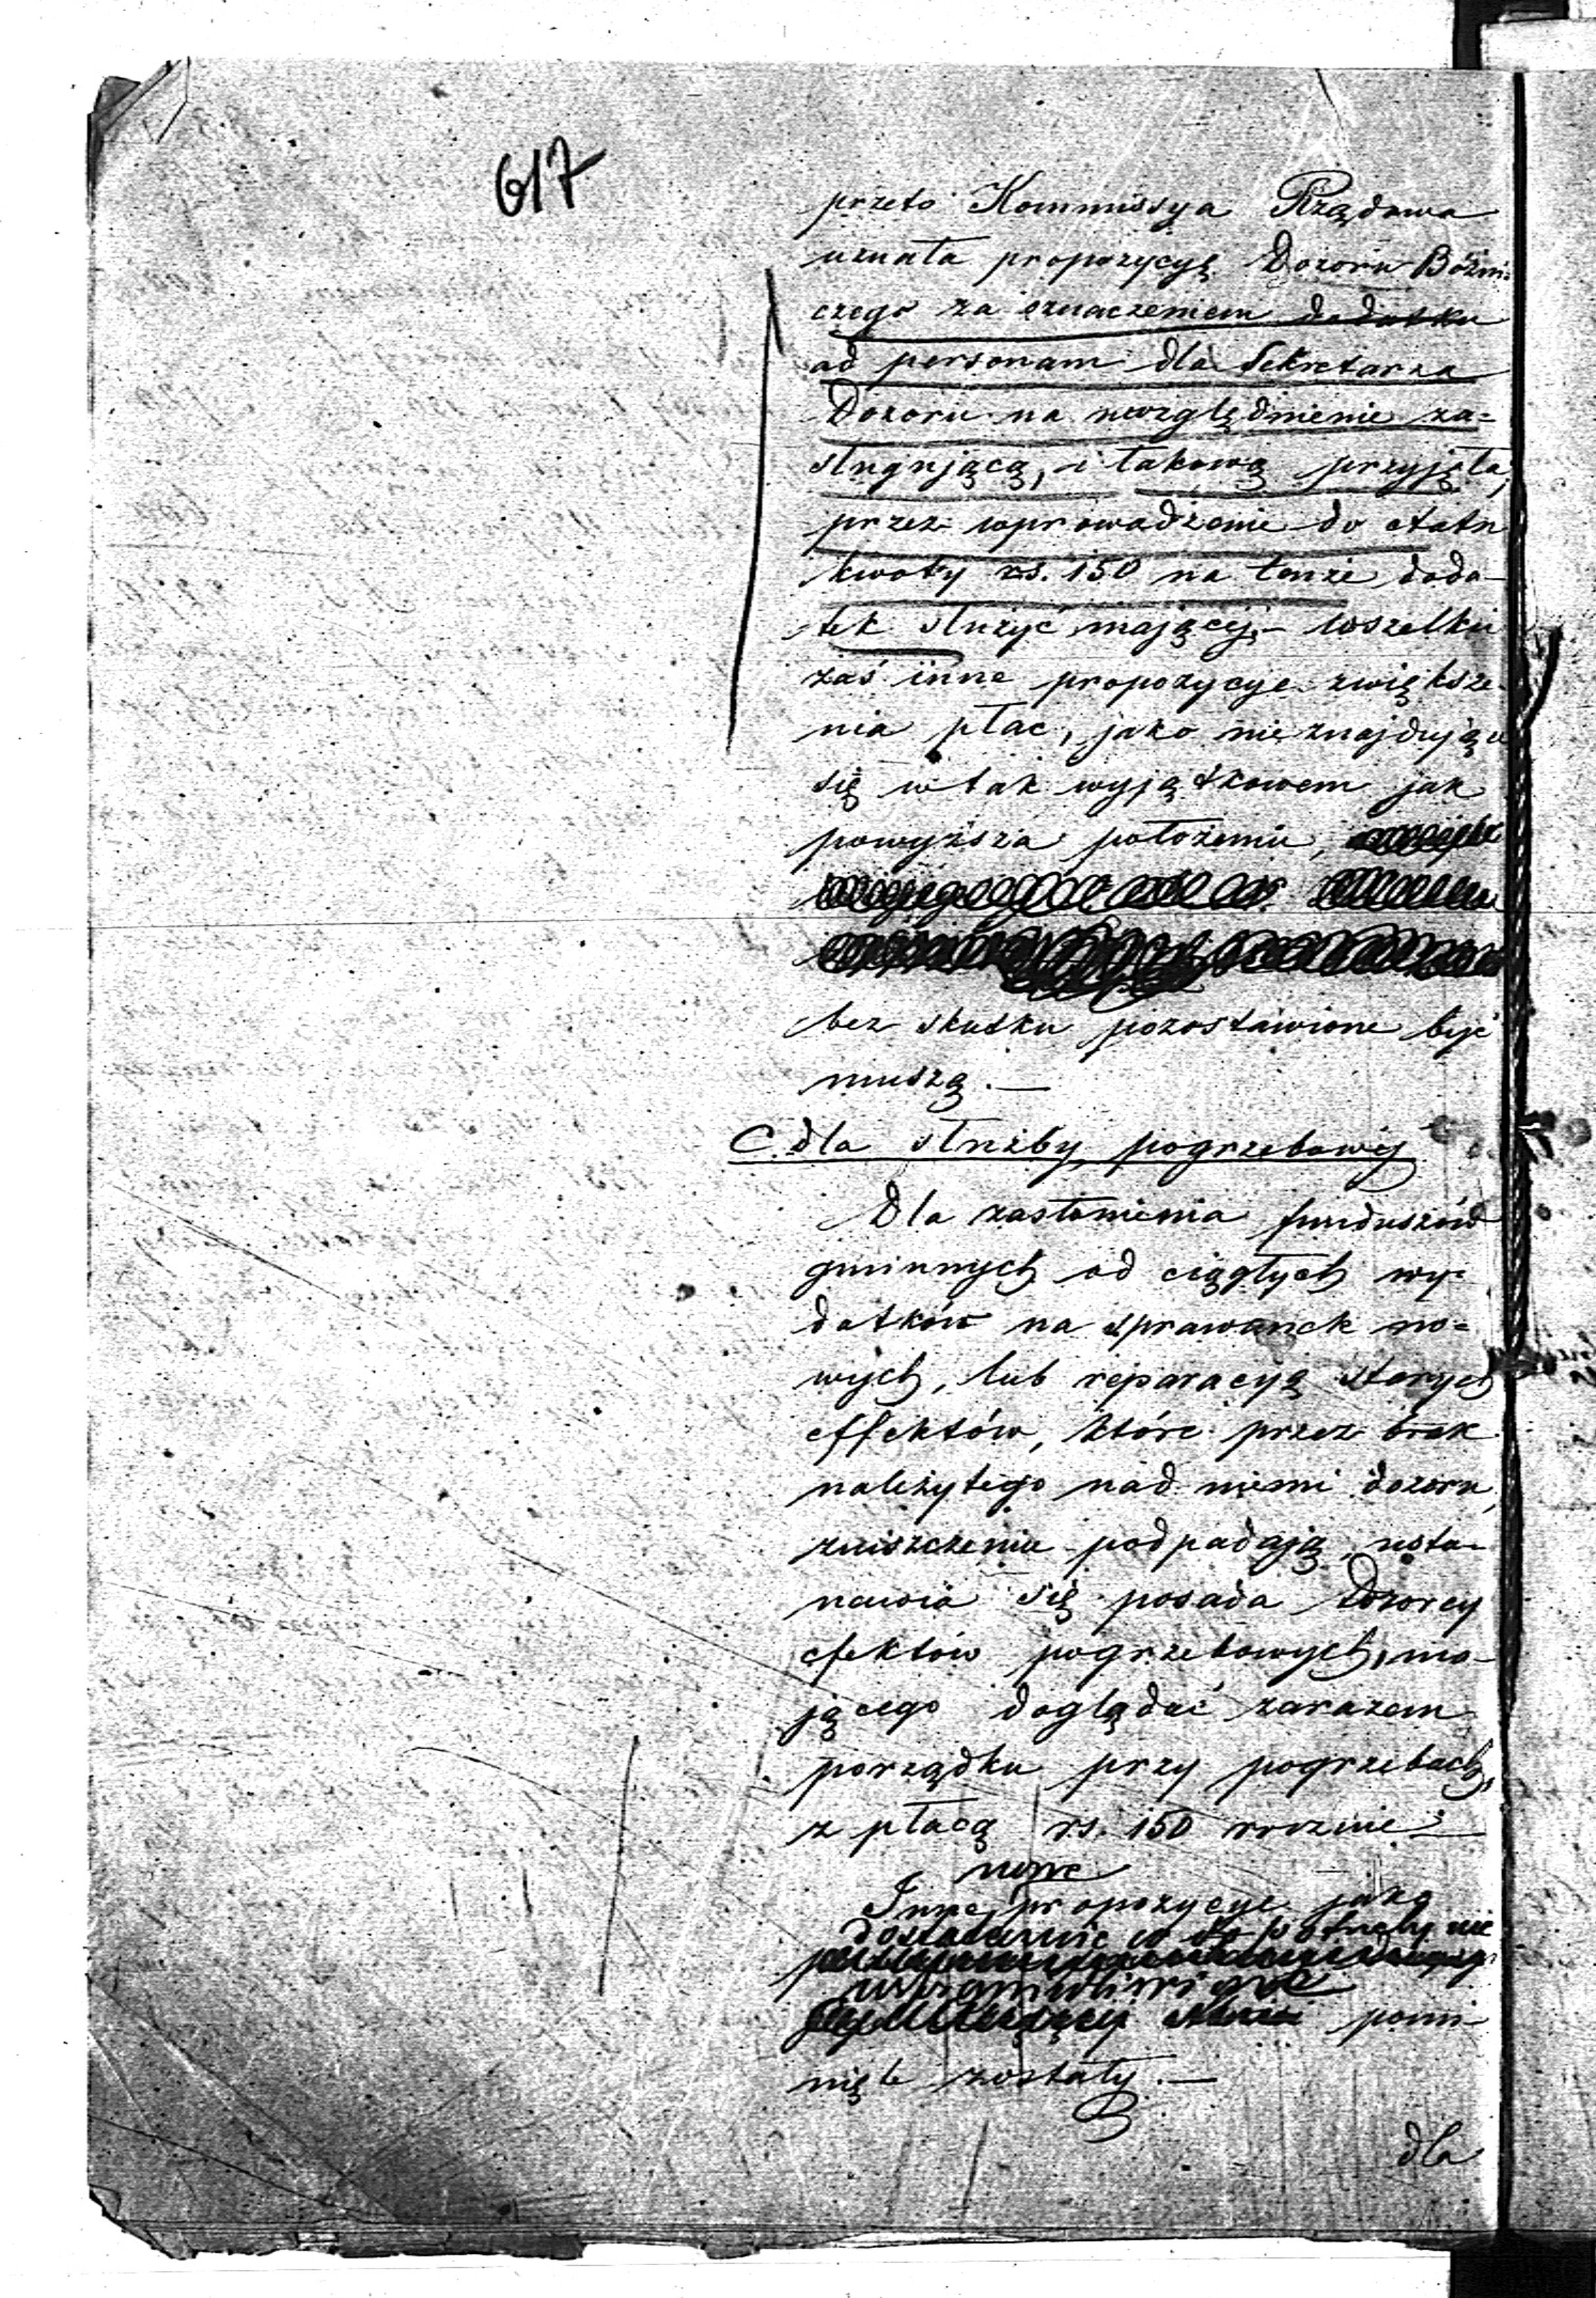 617
przeto Kommissya Rządowa
uznała propozycyę Dozoru Bóżni=
czego za oznaczeniem dodatku
ad personam dla Sekretarza
Dozoru na uwzględnienie za=
sługującą, i takową przyjęła,
przez wprowadzenie do etatu
kwoty rs. 150 na tenże doda-
tek służyć mającej, – wszelkie
zaś inne propozycye zwiększe-
nia płac, jako nie znajdujące
się w tak wyjątkowem jak
powyższa położeniu,
bez skutku pozostawione być
muszą. —
C. dla służby pogrzebowej
Dla zasłonienia funduszów
gminnych od ciągłych wy-
datków na sprawunek no=
wych, lub reparacyą starych
effektów, które przez brak
należytego nad niemi dozoru,
zniszczeniu podpadają, usta-
nawia się posada Dozorcy
efektów pogrzebowych, ma-
jącego doglądać zarazem
porządku przy pogrzebach,
z płacą rs. 150 rocznie —
nowe
Inne propozycye jako
dostatecznie co do potrzeby nie
pomi-
nięte zostały. —
dla